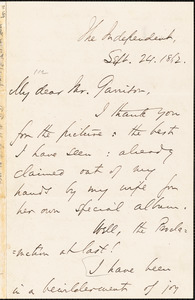 The Independent,
Sept. 24. 1862.
My dear Mr. Garrison,
I thank you
for the picture: the best
I have seen: already
claimed out of my
hands by my wife for
her own special album.
Well, the Procla-
-mation at last!
I have been
in a bewilderment of joy